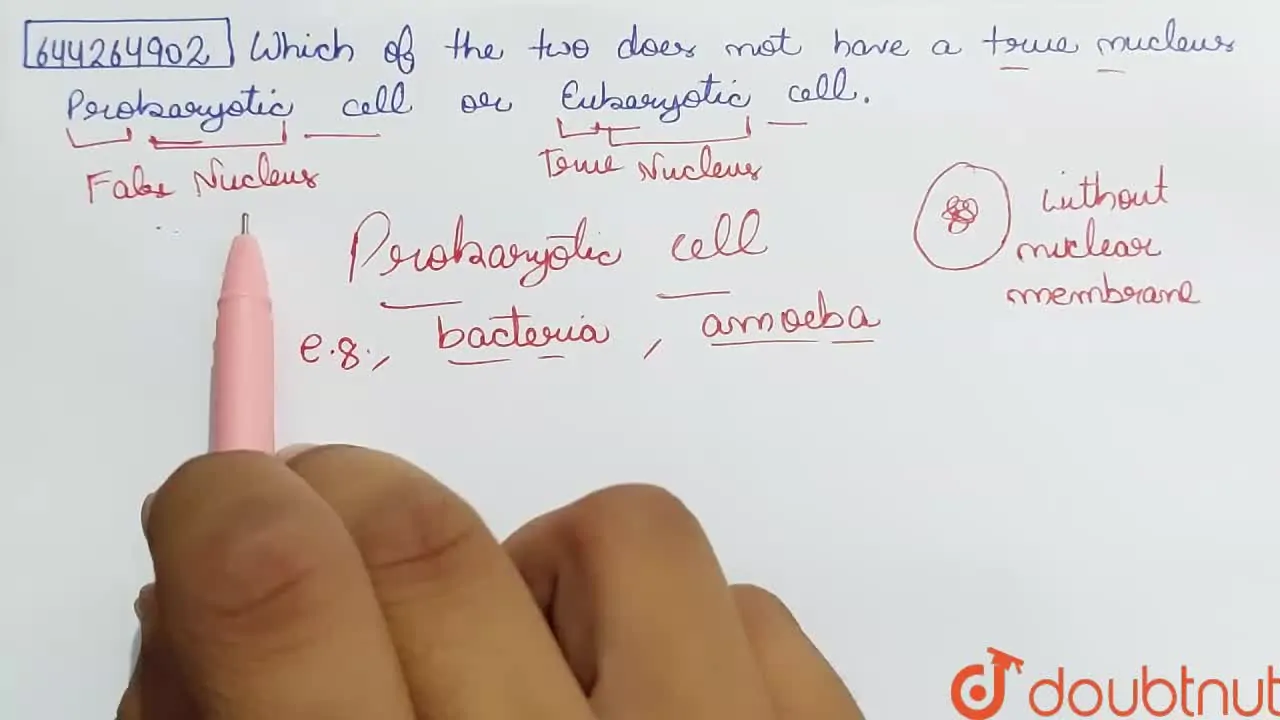 644264902. Which of the two does not have a true nucleus
Prokaryotic cell or Eukaryotic cell.
False Nucleus
True Nucleus
Prokaryotic cell
e.g., bacteria, amoeba
without
nuclear
membrane
doubtnut